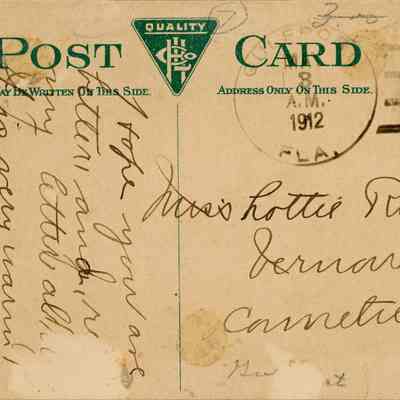 POST CARD
QUALITY
MAY BE WRITTEN ON THIS SIDE.
ADDRESS ONLY ON THIS SIDE.
8
A.M.
1912
FLA.
I hope you are
better and
my letter all
is very warm
Miss Lottie R
Vernon
Connecti